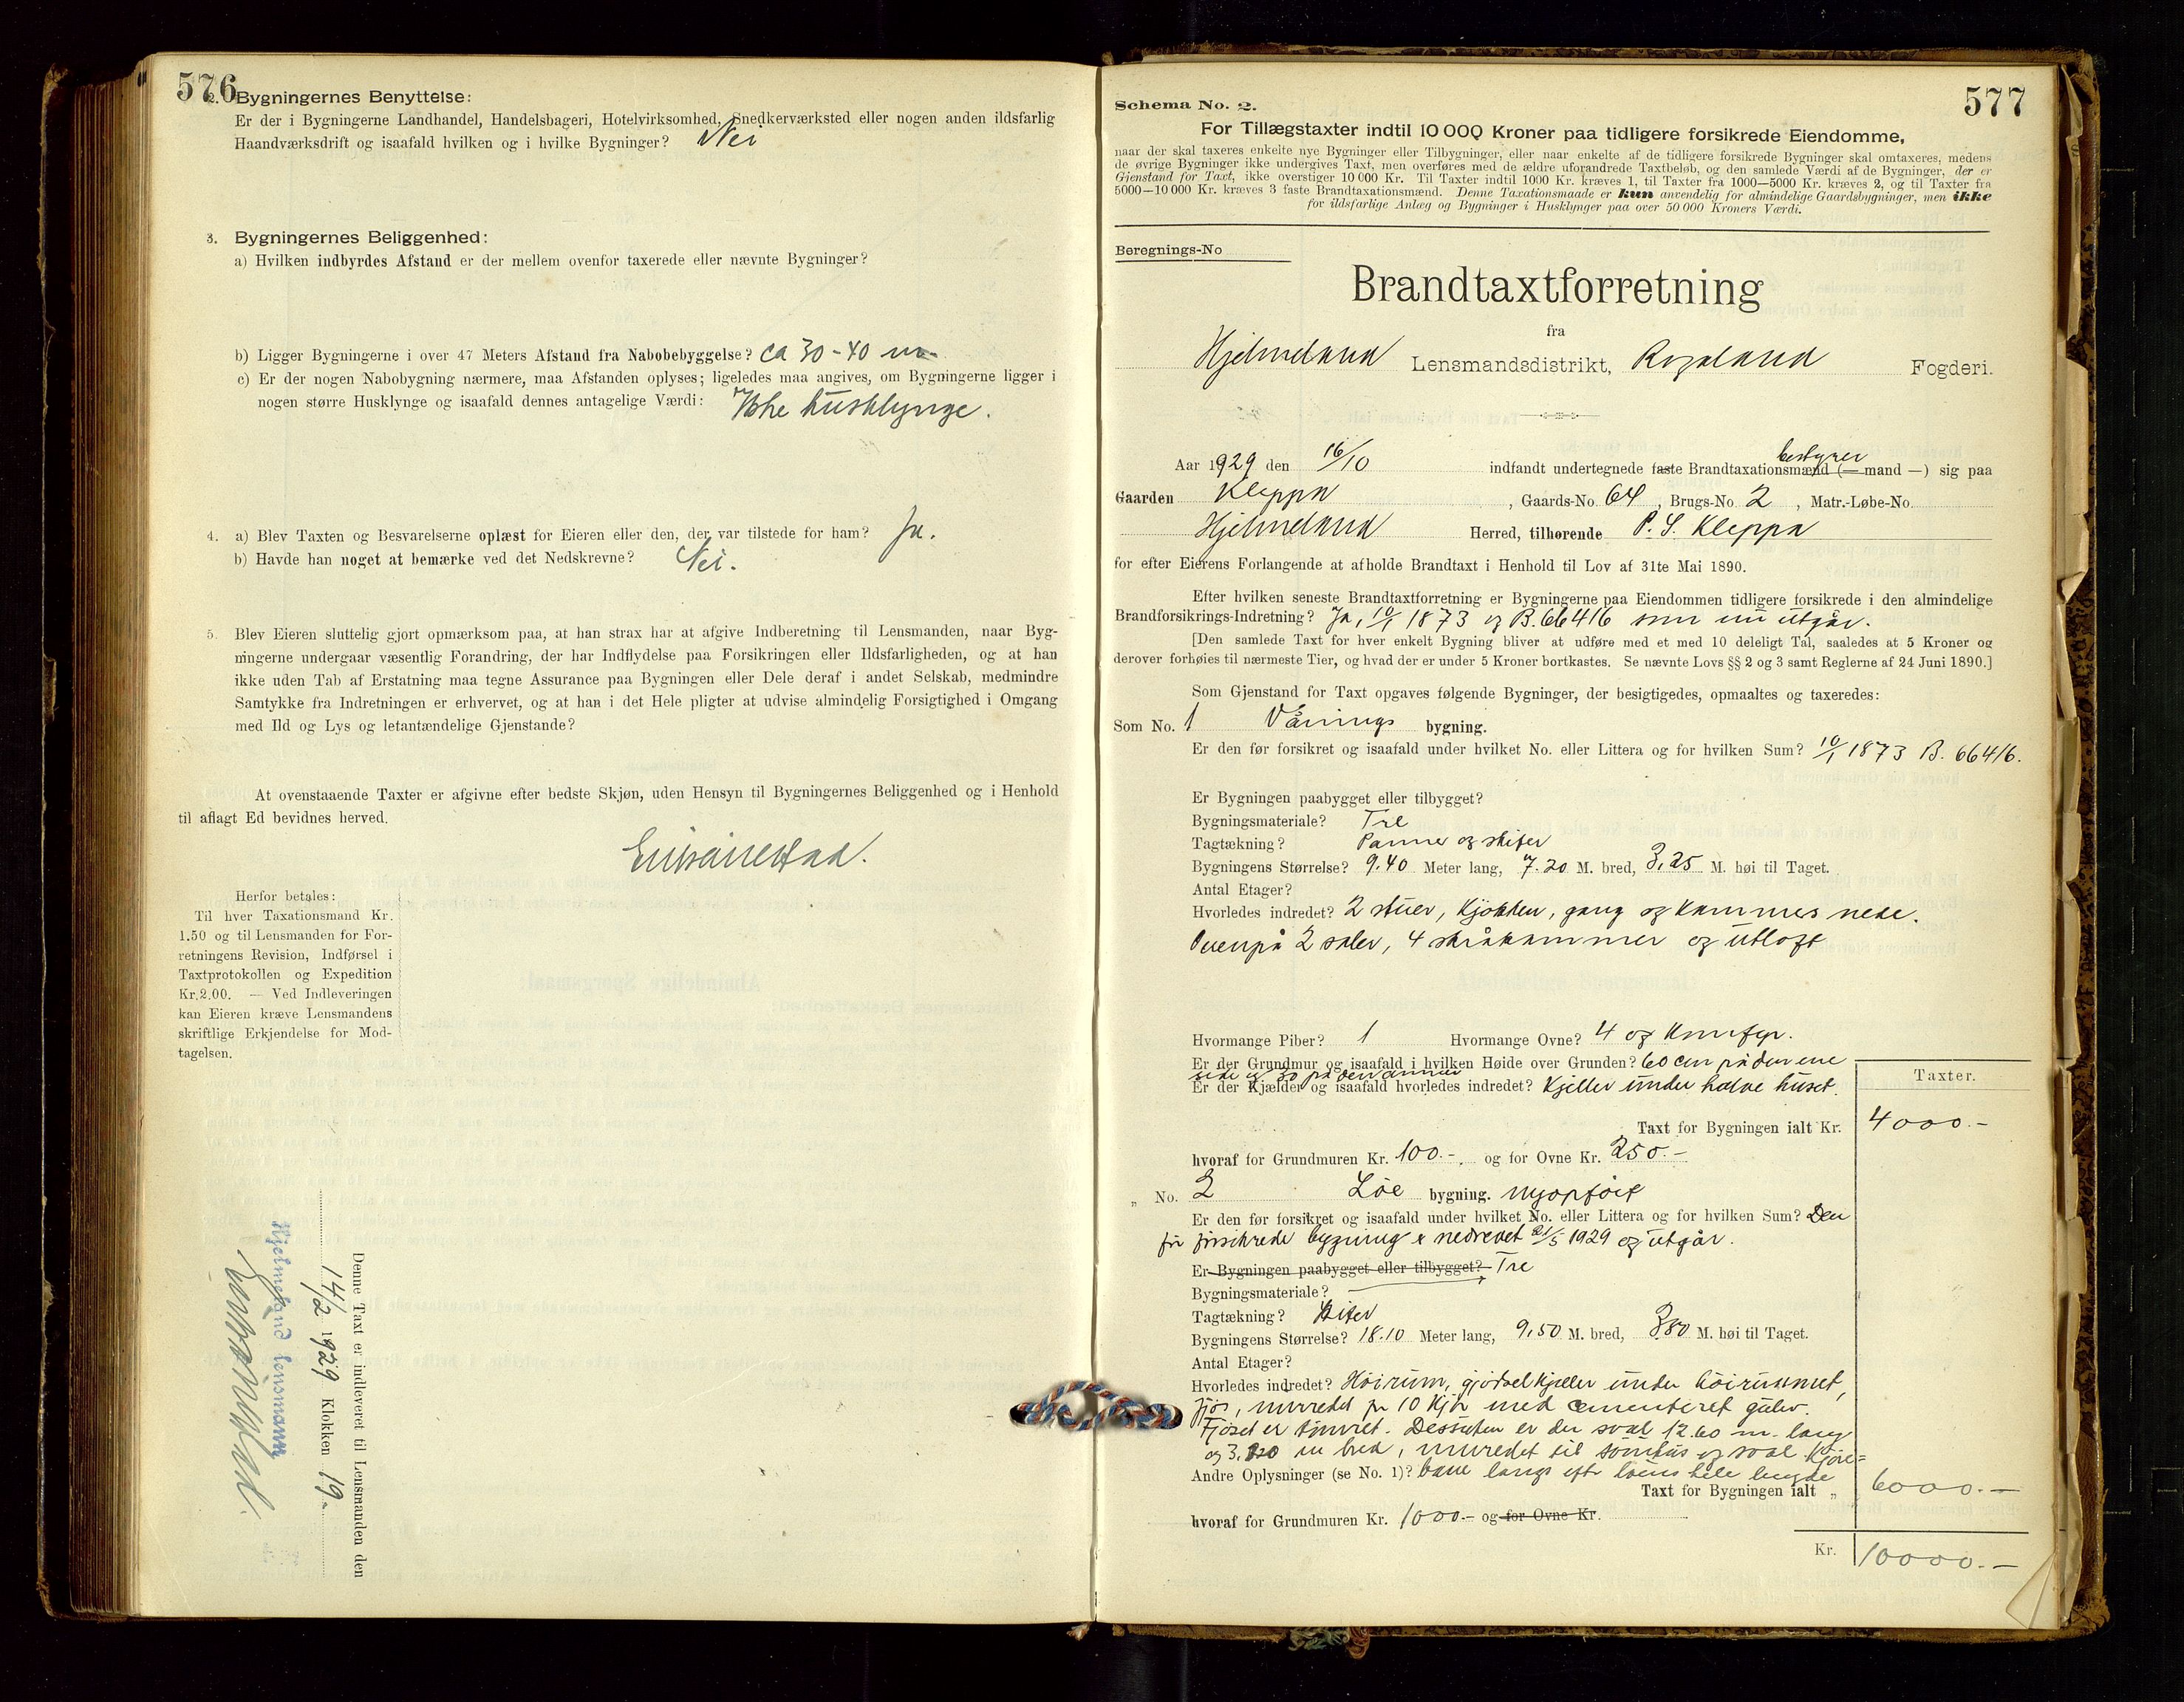 576
2. Bygningernes Benyttelse:
Er der i Bygningerne Landhandel, Handelsbageri, Hotelvirksomhed, Snedkerværksted eller nogen anden ildsfarlig
Haandværksdrift og isaafald hvilken og i hvilke Bygninger? Nei
3. Bygningernes Beliggenhed:
a) Hvilken indbyrdes Afstand er der mellem ovenfor taxerede eller nævnte Bygninger?
b) Ligger Bygningerne i over 47 Meters Afstand fra Nabobebyggelse? ca 30-40 m
c) Er der nogen Nabobygning nærmere, maa Afstanden oplyses; ligeledes maa angives, om Bygningerne ligger i
nogen større Husklynge og isaafald dennes antagelige Værdi: Ikke husklynge.
4. a) Blev Taxten og Besvarelserne oplæst for Eieren eller den, der var tilstede for ham? Ja.
b) Havde han noget at bemærke ved det Nedskrevne? Nei.
5. Blev Eieren sluttelig gjort opmærksom paa, at han strax har at afgive Indberetning til Lensmanden, naar Byg-
ningerne undergaar væsentlig Forandring, der har Indflydelse paa Forsikringen eller Ildsfarligheden, og at han
ikke uden Tab af Erstatning maa tegne Assurance paa Bygningen eller Dele deraf i andet Selskab, medmindre
Samtykke fra Indretningen er erhvervet, og at han i det Hele pligter at udvise almindelig Forsigtighed i Omgang
med Ild og Lys og letantændelige Gjenstande?
At ovenstaaende Taxter er afgivne efter bedste Skjøn, uden Hensyn til Bygningernes Beliggenhed og i Henhold
til aflagt Ed bevidnes herved.
Herfor betales:
Til hver Taxationsmand Kr.
1.50 og til Lensmanden for For-
retningens Revision, Indførsel i
Taxtprotokollen og Expedition
Kr. 2.00. — Ved Indleveringen
kan Eieren kræve Lensmandens
skriftlige Erkjendelse for Mod-
tagelsen.
Denne Taxt er indleveret til Lensmanden den
14/2 1929 Klokken 19-
Hjelmeland lensmann
577
Schema No. 2.
For Tillægstaxter indtil 10 000 Kroner paa tidligere forsikrede Eiendomme,
naar der skal taxeres enkelte nye Bygninger eller Tilbygninger, eller naar enkelte af de tidligere forsikrede Bygninger skal omtaxeres, medens
de øvrige Bygninger ikke undergives Taxt, men overføres med de ældre uforandrede Taxtbeløb, og den samlede Værdi af de Bygninger, der er
Gjenstand for Taxt, ikke overstiger 10 000 Kr. Til Taxter indtil 1000 Kr. kræves 1, til Taxter fra 1000—5000 Kr. kræves 2, og til Taxter fra
5000—10 000 Kr. kræves 3 faste Brandtaxationsmænd. Denne Taxationsmaade er kun anvendelig for almindelige Gaardsbygninger, men ikke
for ildsfarlige Anlæg og Bygninger i Husklynger paa over 50 000 Kroners Værdi.
Beregnings-No
Brandtaxtforretning
fra
Hjelmeland Lensmandsdistrikt, Rogaland Fogderi.
bestyrer
Aar 1929 den 16/10 indfandt undertegnede faste Brandtaxationsmænd (— mand —) sig paa
Gaarden Kleppa, Gaards-No 64, Brugs-No 2, Matr.-Løbe-No
Hjelmeland Herred, tilhørende P. S. Kleppa
for efter Eierens Forlangende at afholde Brandtaxt i Henhold til Lov af 31te Mai 1890.
Efter hvilken seneste Brandtaxtforretning er Bygningerne paa Eiendommen tidligere forsikrede i den almindelige
Brandforsikrings-Indretning? Ja, 10/1 1873 og B.66416 som nu utgår.
[Den samlede Taxt for hver enkelt Bygning bliver at udføre med et med 10 deleligt Tal, saaledes at 5 Kroner og
derover forhøies til nærmeste Tier, og hvad der er under 5 Kroner bortkastes. Se nævnte Lovs §§ 2 og 3 samt Reglerne af 24 Juni 1890.]
Som Gjenstand for Taxt opgaves følgende Bygninger, der besigtigedes, opmaaltes og taxeredes:
Som No. 1 Vånings bygning.
Er den før forsikret og isaafald under hvilket No. eller Littera og for hvilken Sum? 10/1 1873 B. 66416.
Er Bygningen paabygget eller tilbygget?
Bygningsmateriale? Tre
Tagtækning? Panner og skifer
Bygningens Størrelse? 9.40 Meter lang, 7.20 M. bred, 3,25 M. høi til Taget.
Antal Etager?
Hvorledes indredet? 2 stuer, kjøkken, gang og kammers nede.
Ovenpå 2 saler, 4 skråkammer og utloft
Hvormange Piber? 1 Hvormange Ovne? 4 og komfyr.
Er der Grundmur og isaafald i hvilken Høide over Grunden? 60 cm på den ene
side og 30 på den annen
Er der Kjælder og isaafald hvorledes indredet? Kjeller under halve huset.
Taxter.
Taxt for Bygningen ialt Kr. 4000.-
hvoraf for Grundmuren Kr. 100.-, og for Ovne Kr. 250.-
„ No. 2 Løe bygning. nyopført
Er den før forsikret og isaafald under hvilket No. eller Littera og for hvilken Sum? Den
før forsikrede bygning er nedrevet 21/5 1929 og utgår.
Er Bygningen paabygget eller tilbygget? Tre
Bygningsmateriale?
Tagtækning? Skifer
Bygningens Størrelse? 18.10 Meter lang, 9,50 M. bred, 3.80 M. høi til Taget.
Antal Etager?
Hvorledes indredet? Høirum, gjødselkjeller under høirummet,
fjøs, innredet for 10 kjør med cementeret gulv.
Fjøset er tømret. Dessuten er der sval 12.60 m. lang
og 3. m bred, innredet til og sval. Kjøre-
Andre Oplysninger (se No. 1)? bane langs efter løens hele lengde
Taxt for Bygningen ialt „ 6000.-
hvoraf for Grundmuren Kr. 1000.- og for Ovne Kr.
Kr. 10000.-